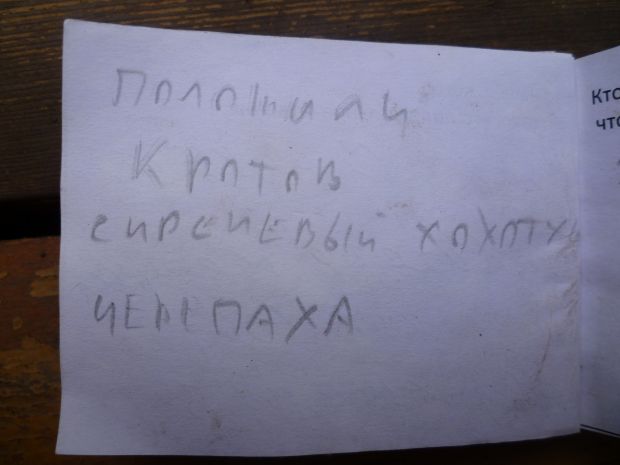 положили
Кротов
сиреневый хохоту
черепаха
Кто
что